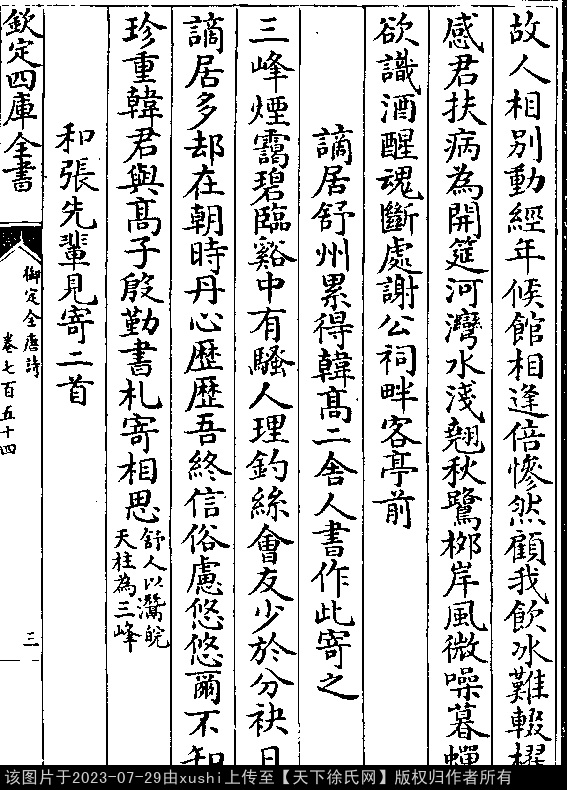 故人相别動經年候館相逢倍慘然顧我飲冰難輟櫂
感君扶病為開筵河灣水淺翹秋鷺栁岸風微噪暮蟬
欲識酒醒魂斷處謝公祠畔客亭前
謫居舒州累得韓髙二舍人書作此寄之
三峰煙靄碧臨谿中有騷人理釣絲會友少於分袂日
謫居多却在朝時丹心歴歴吾終信俗慮悠悠爾不知
珍重韓君與髙子殷勤書札寄相思舒人以灊皖
天柱為三峰
和張先輩見寄二首
欽定四庫全書
御定全唐詩
卷七百五十四
三
该图片于2023-07-29由xushi上传至【天下徐氏网】版权归作者所有